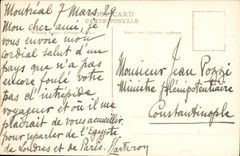 Montréal 7 Mars. 29
POST CARD
CARTE POSTALE
Mon cher ami, je
vous envoie mon
cordial salut d'un
pays que n'a pas
encore foulé votre
pas d'intrépide
voyageur et où il me
plairait de vous accueillir,
pour reparler de l'Egypte
de Londres et de Paris.
Monsieur Jean
Ministre Plénipotentiaire
Constantinople